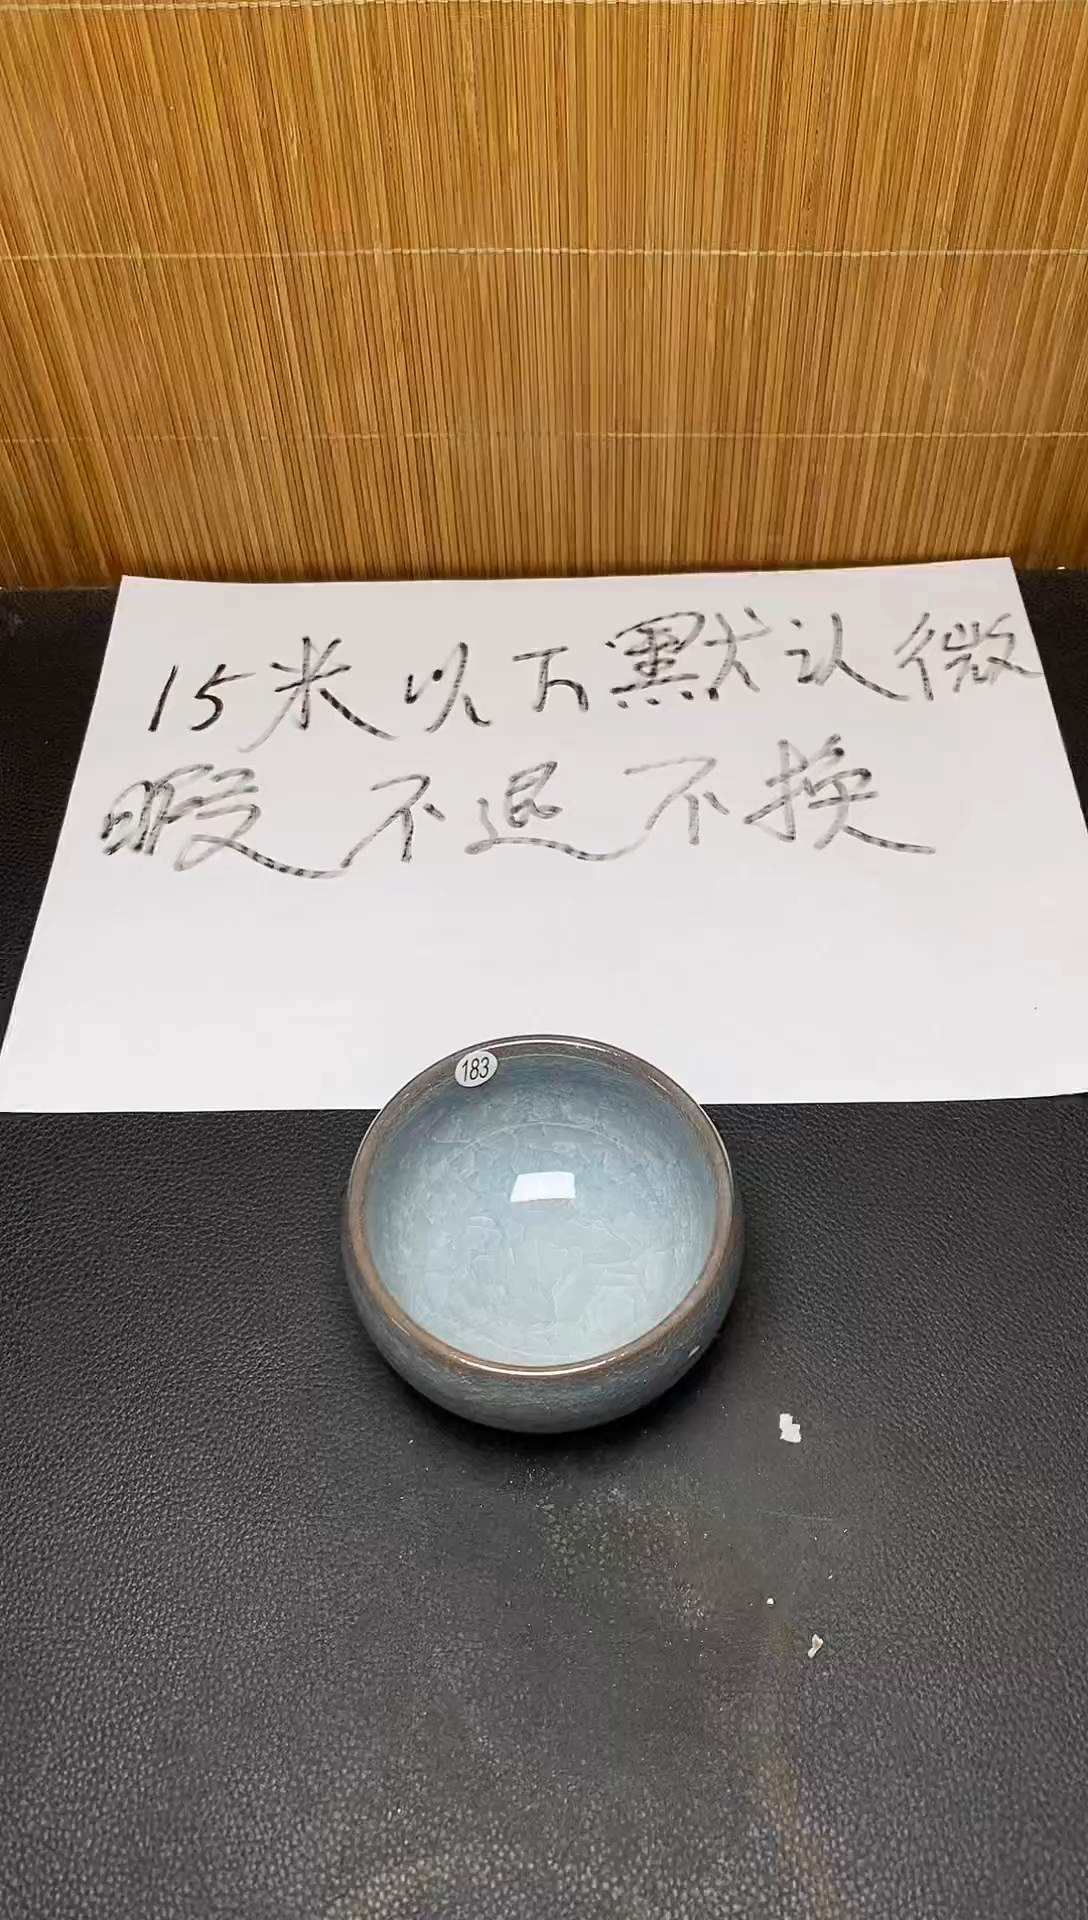 15米以下默认微
暇不退不换
183